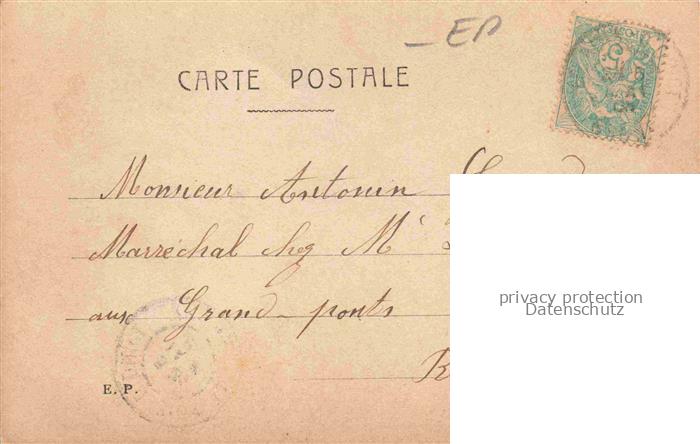 EP
CARTE POSTALE
Monsieur Antonin
Marréchal chez Mr
aux Grand-ponts
R
E. P.
privacy protection
Datenschutz